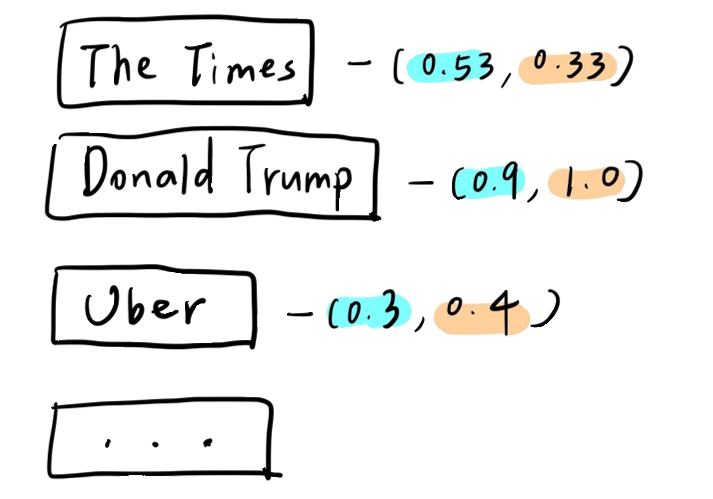 The Times - (0.53, 0.33)
Donald Trump - (0.9, 1.0)
Uber - (0.3, 0.4)
...